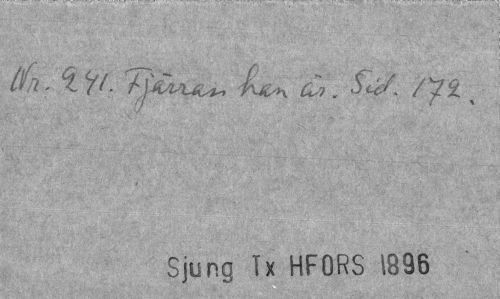 Nr. 241. Fjärran han är. Sid. 172.
Sjung Tx HFORS 1896